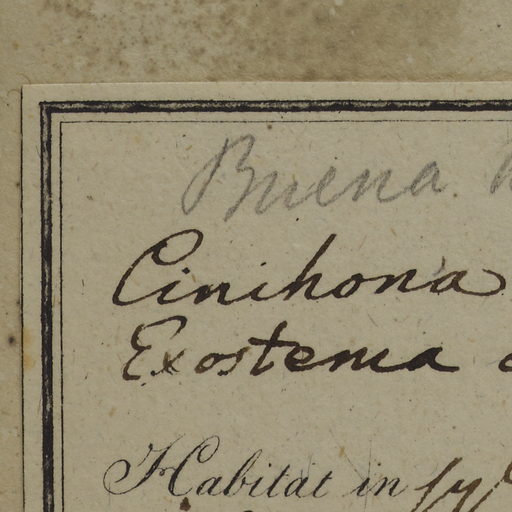 Buena
Cinihona
Exostema
Habitat in